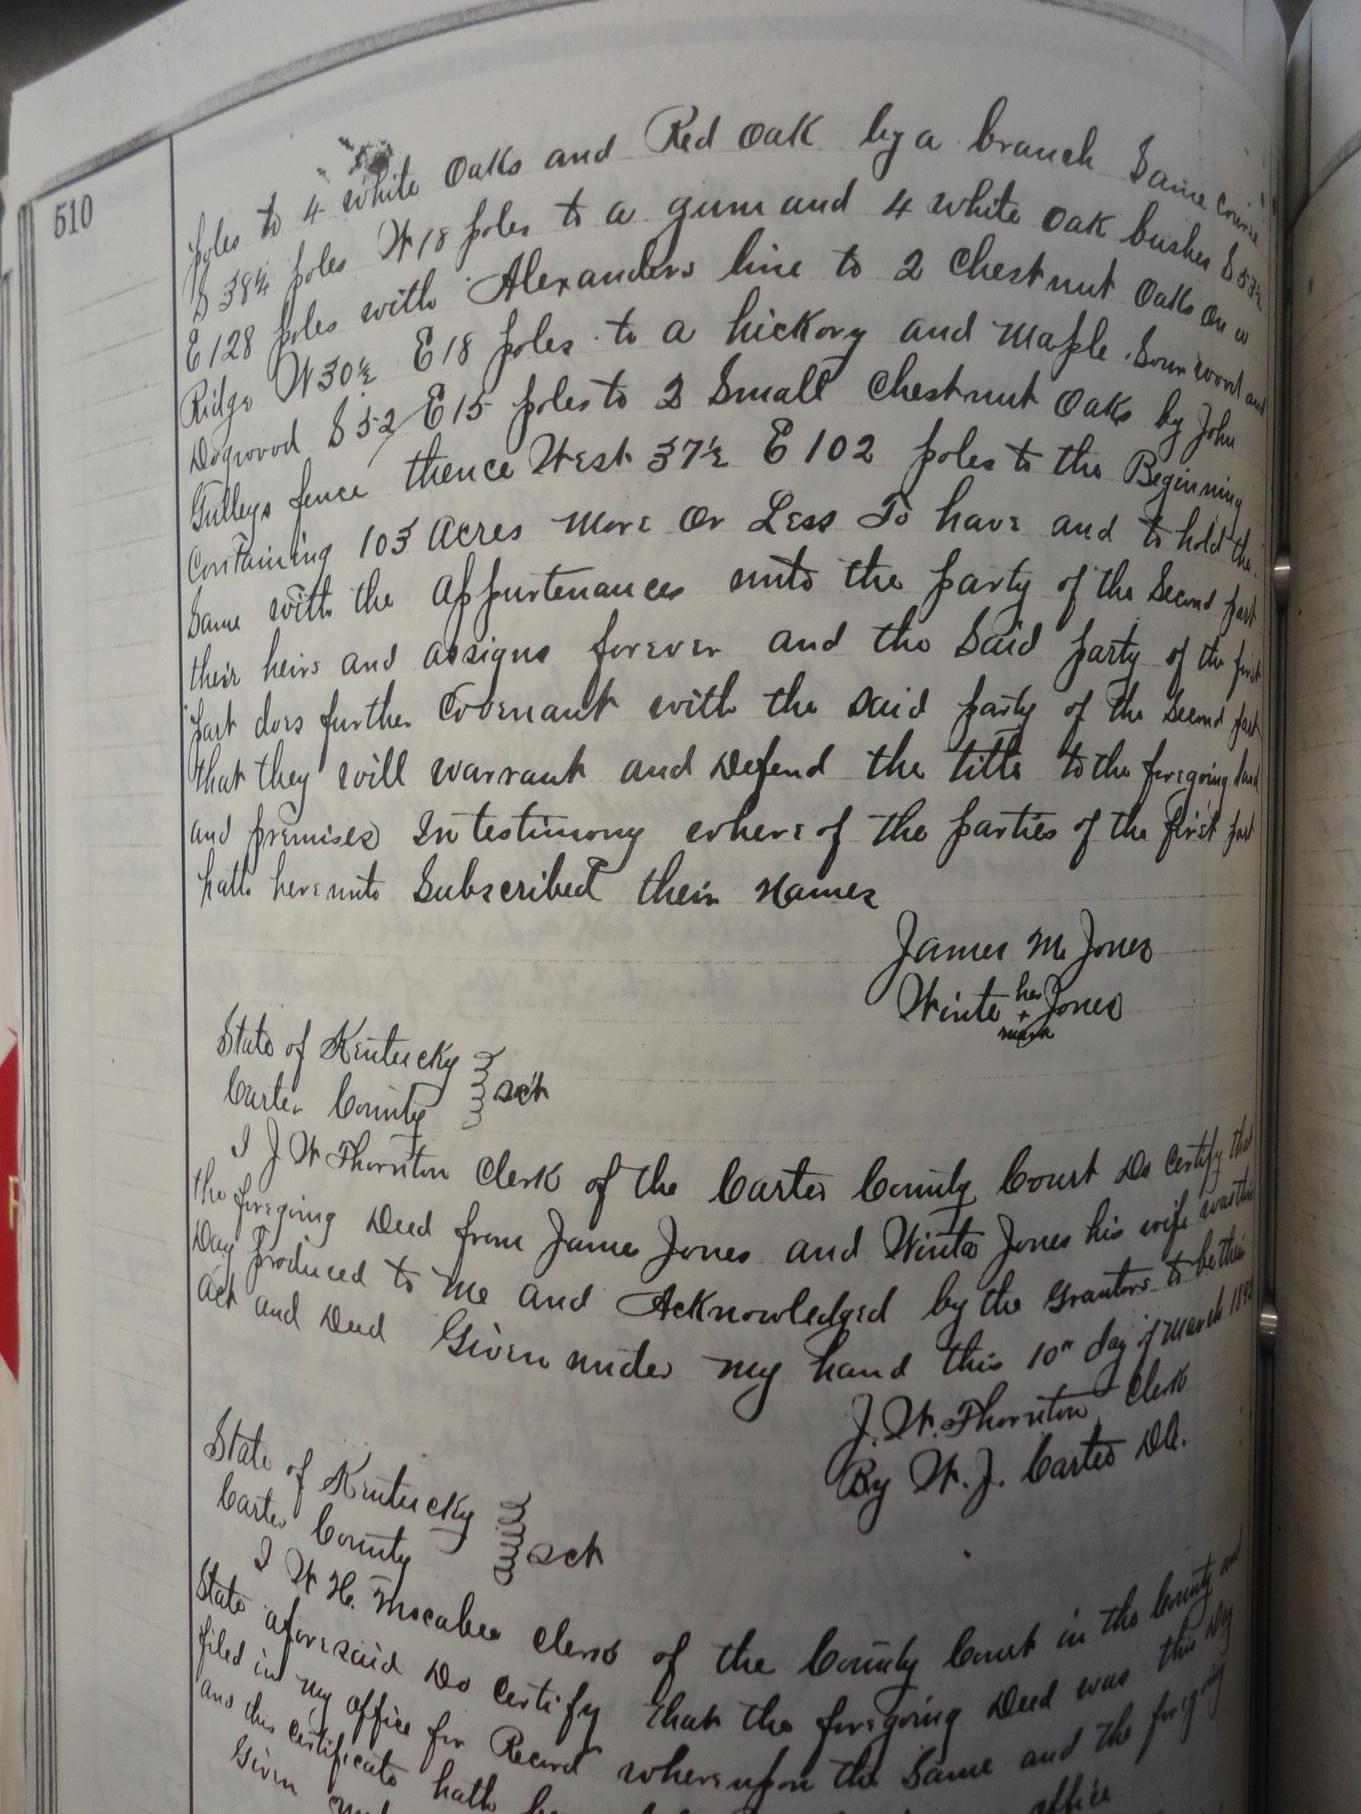 510
poles to 4 white Oaks and Red Oak by a branch Same course
S 38¼ poles W 18 poles to a gum and 4 white Oak bushes S 53½
E 128 poles with Alexanders line to 2 Chestnut Oaks on a
Ridge N 30½ E 18 poles to a hickory and Maple Sourwood and
Dogwood S 52 E 15 poles to 2 Small Chestnut Oaks by John
Gulleys fence thence West 37½ E 102 poles to the Beginning
Containing 103 Acres More Or Less To have and to hold the
Same with the appurtenances unto the party of the Second part
their heirs and assigns forever and the Said party of the first
part does further Covenant with the said party of the Second part
that they will warrant and Defend the title to the foregoing land
and premises In testimony where of the parties of the first part
hath hereunto Subscribed their Names
James M Jones
Winte her + mark Jones
State of Kentucky
Carter County } sct
I J W Thornton Clerk of the Carter County Court Do Certify that
the foregoing Deed from James Jones and Winte Jones his wife was this
Day produced to me and Acknowledged by the Grantors to be their
act and Deed Given under my hand this 10th day of March
J. W. Thornton Clerk
By W. J. Carter DC.
State of Kentucky
Carter County } sct
I W H. Mocabee Clerk of the County Court in the County and
State aforesaid Do Certify that the foregoing Deed was this Day
filed in my office for Record whereupon the Same and the foregoing
and this certificate hath
Given office